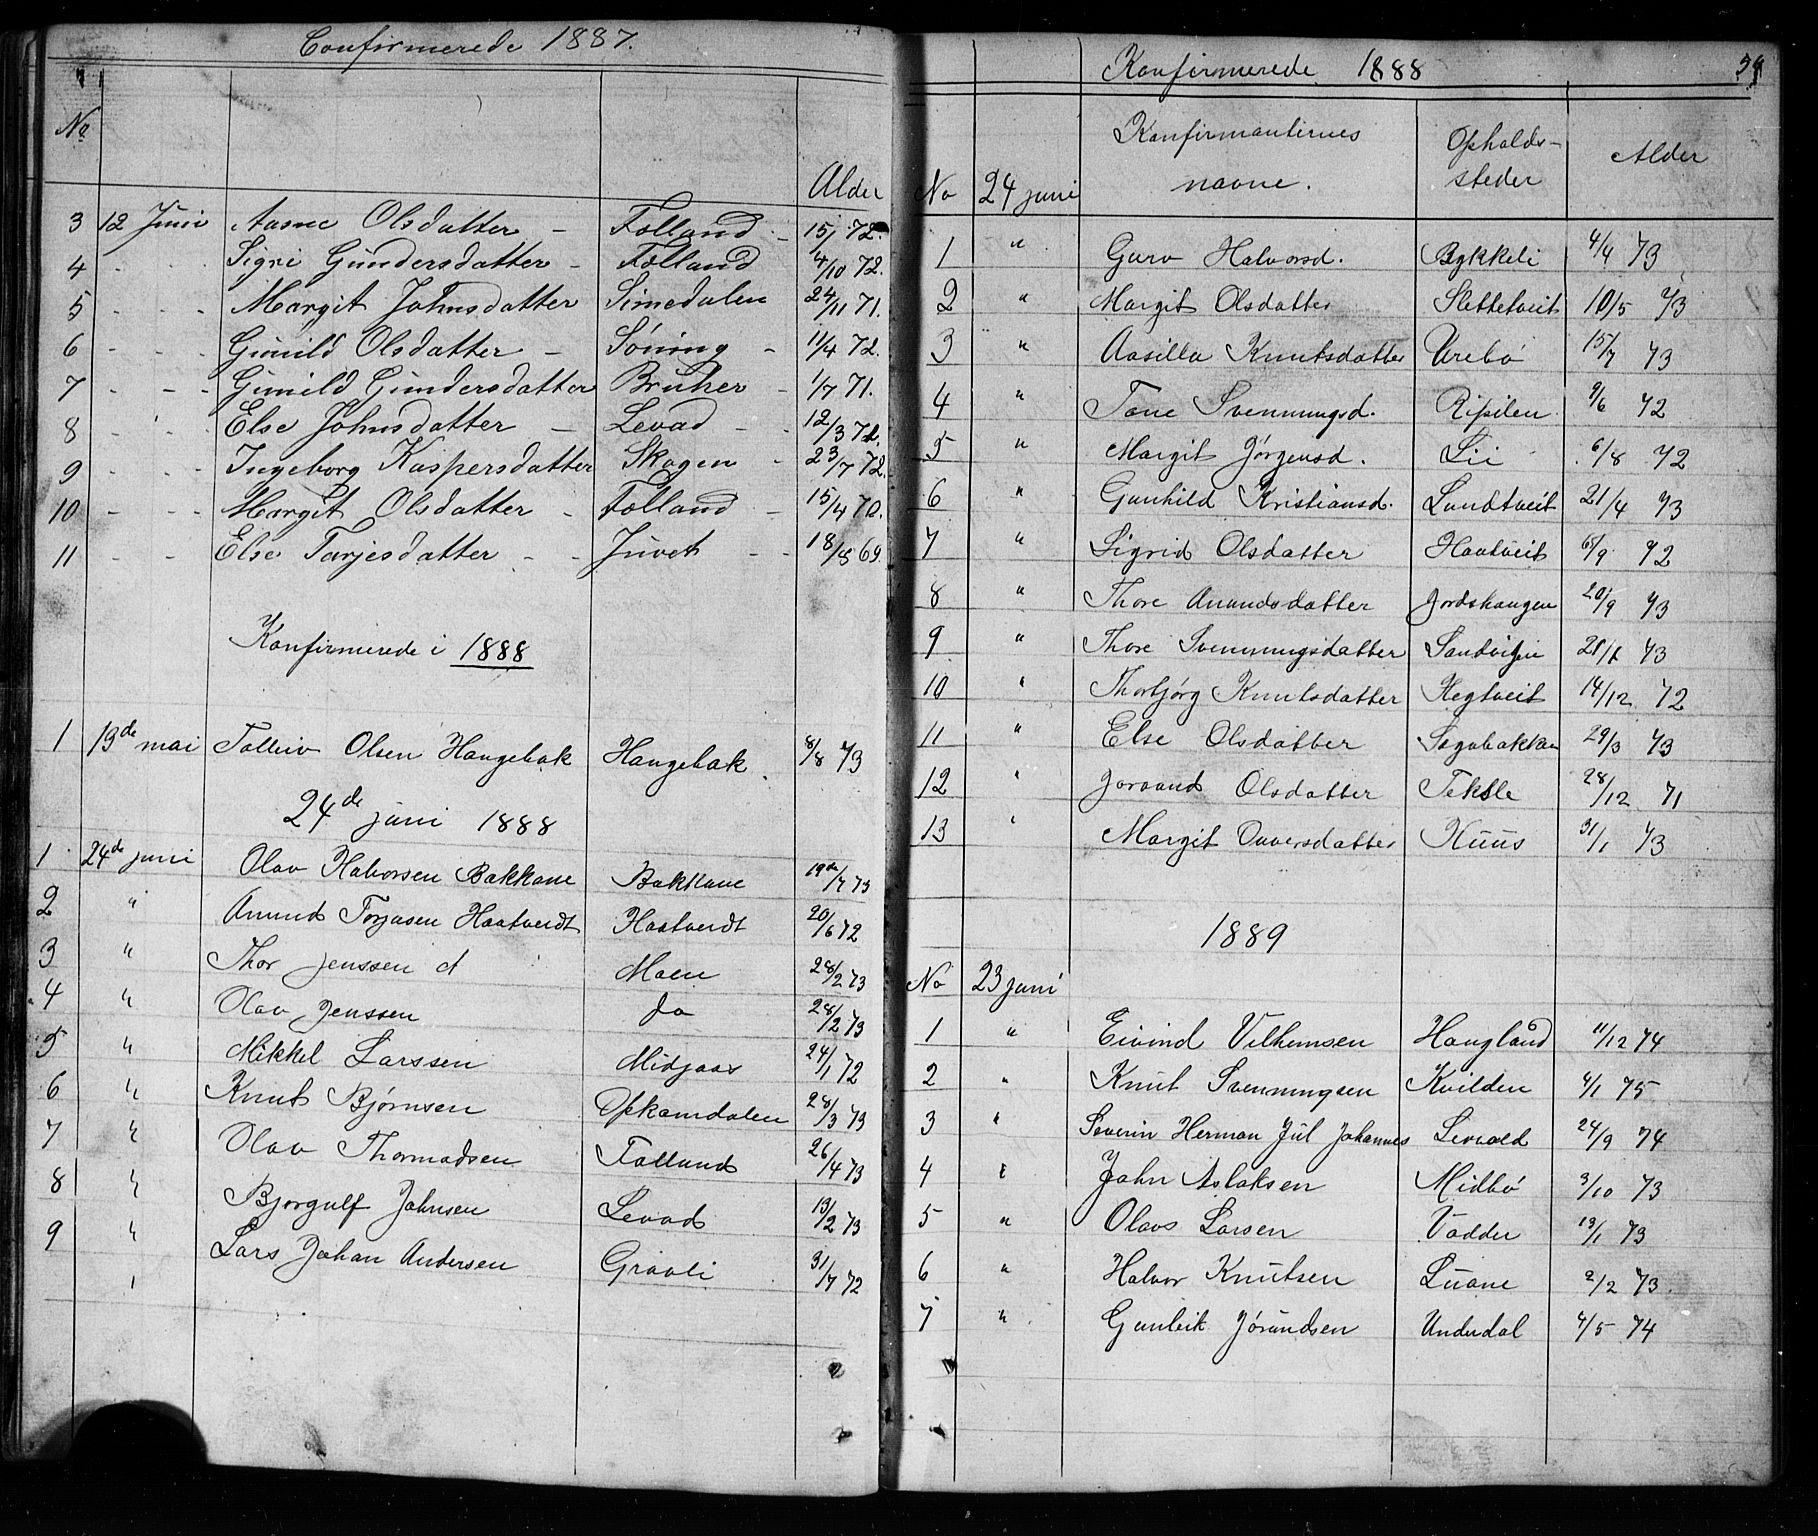 Confirmerede 1887.
No Alder
3 12 Juni Aasne Olsdatter - Folland - 15/1 72.
4 - - - Sigri Gundersdatter - Folland 4/10 72.
5 - - - Margit Johnsdatter Simedalen 24/11 71.
6 - - - Gunild Olsdatter - Søning - 11/4 72.
7 - - - Gunild Gundersdatter Bruher - 1/7 71.
8 - - - Else Johnsdatter - Levad - - 12/3 72.
9 - - - Ingeborg Kaspersdatter Skogen - 23/7 72.
10 - - - Margit Olsdatter - Folland - 15/4 70.
11 - - - Else Tarjesdatter - - Juvet - - 18/8 69.
Konfirmerede i 1888
1 19de mai Tolleiv Olsen Haugebak Haugebak 8/8 73
24de juni 1888
1 24de juni Olav Halvorsen Bakkane Bakkane 19de/7 73
2 " Anund Torjusen Haatveidt Haatveidt 20/6 72
3 " Thor Jenssen Moen 28/2 73
4 " Olav Jenssen do 28/2 73
5 " Mikkel Larssen Midjaas 24/1 72
6 " Knut Bjørnsen Opkomdalen 28/3 73
7 " Olav Thormodsen Folland 26/4 73
8 " Bjørgulf Johnsen Levad 13/2 73
9 " Lars Johan Andersen Graali 31/7 72
Konfirmerede 1888
No 24 juni Konfirmanternes navne. Opholds-steder Alder
1 " Guro Halvorsd. Bykkeli 4/4 73
2 " Margit Olsdatter Slettetveit 10/5 73
3 " Aasilla Knutsdatter Urebø 15/7 73
4 " Tone Svenningsd. Ripilen 9/6 72
5 " Margit Jørgensd. Lii 6/8 72
6 " Gunhild Kristiansd. Lundtveit 21/4 73
7 " Sigrid Olsdatter Haatveit 6/9 72
8 " Thore Anundsdatter Jordshaugen 20/9 73
9 " Thore Svenningsdatter Sandvigen 28/1 73
10 " Thorbjørg Knutsdatter Hegtveit 14/12 72
11 " Else Olsdatter Sagabakken 29/3 73
12 " Joraand Olsdatter Teksle 28/12 71
13 " Margit Ouversdatter Huus 31/1 73
1889
No 23 juni
1 " Eivind Vilhemsen Haugland 11/12 74
2 " Knut Svenningsen Kvilden 4/1 75
3 " Severin Herman Jul Johannes Levold 24/9 74
4 " John Aslaksen Midbø 3/10 73
5 " Olavs Larsen Vadder 13/1 73
6 " Halvor Knutsen Luane 2/2 73.
7 " Gunleik Jørundsen Underdal 4/5 74